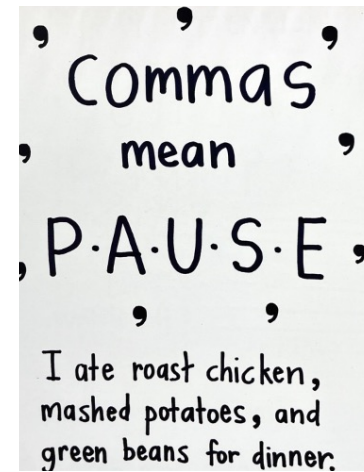 Commas
mean
P·A·U·S·E
I ate roast chicken,
mashed potatoes, and
green beans for dinner.